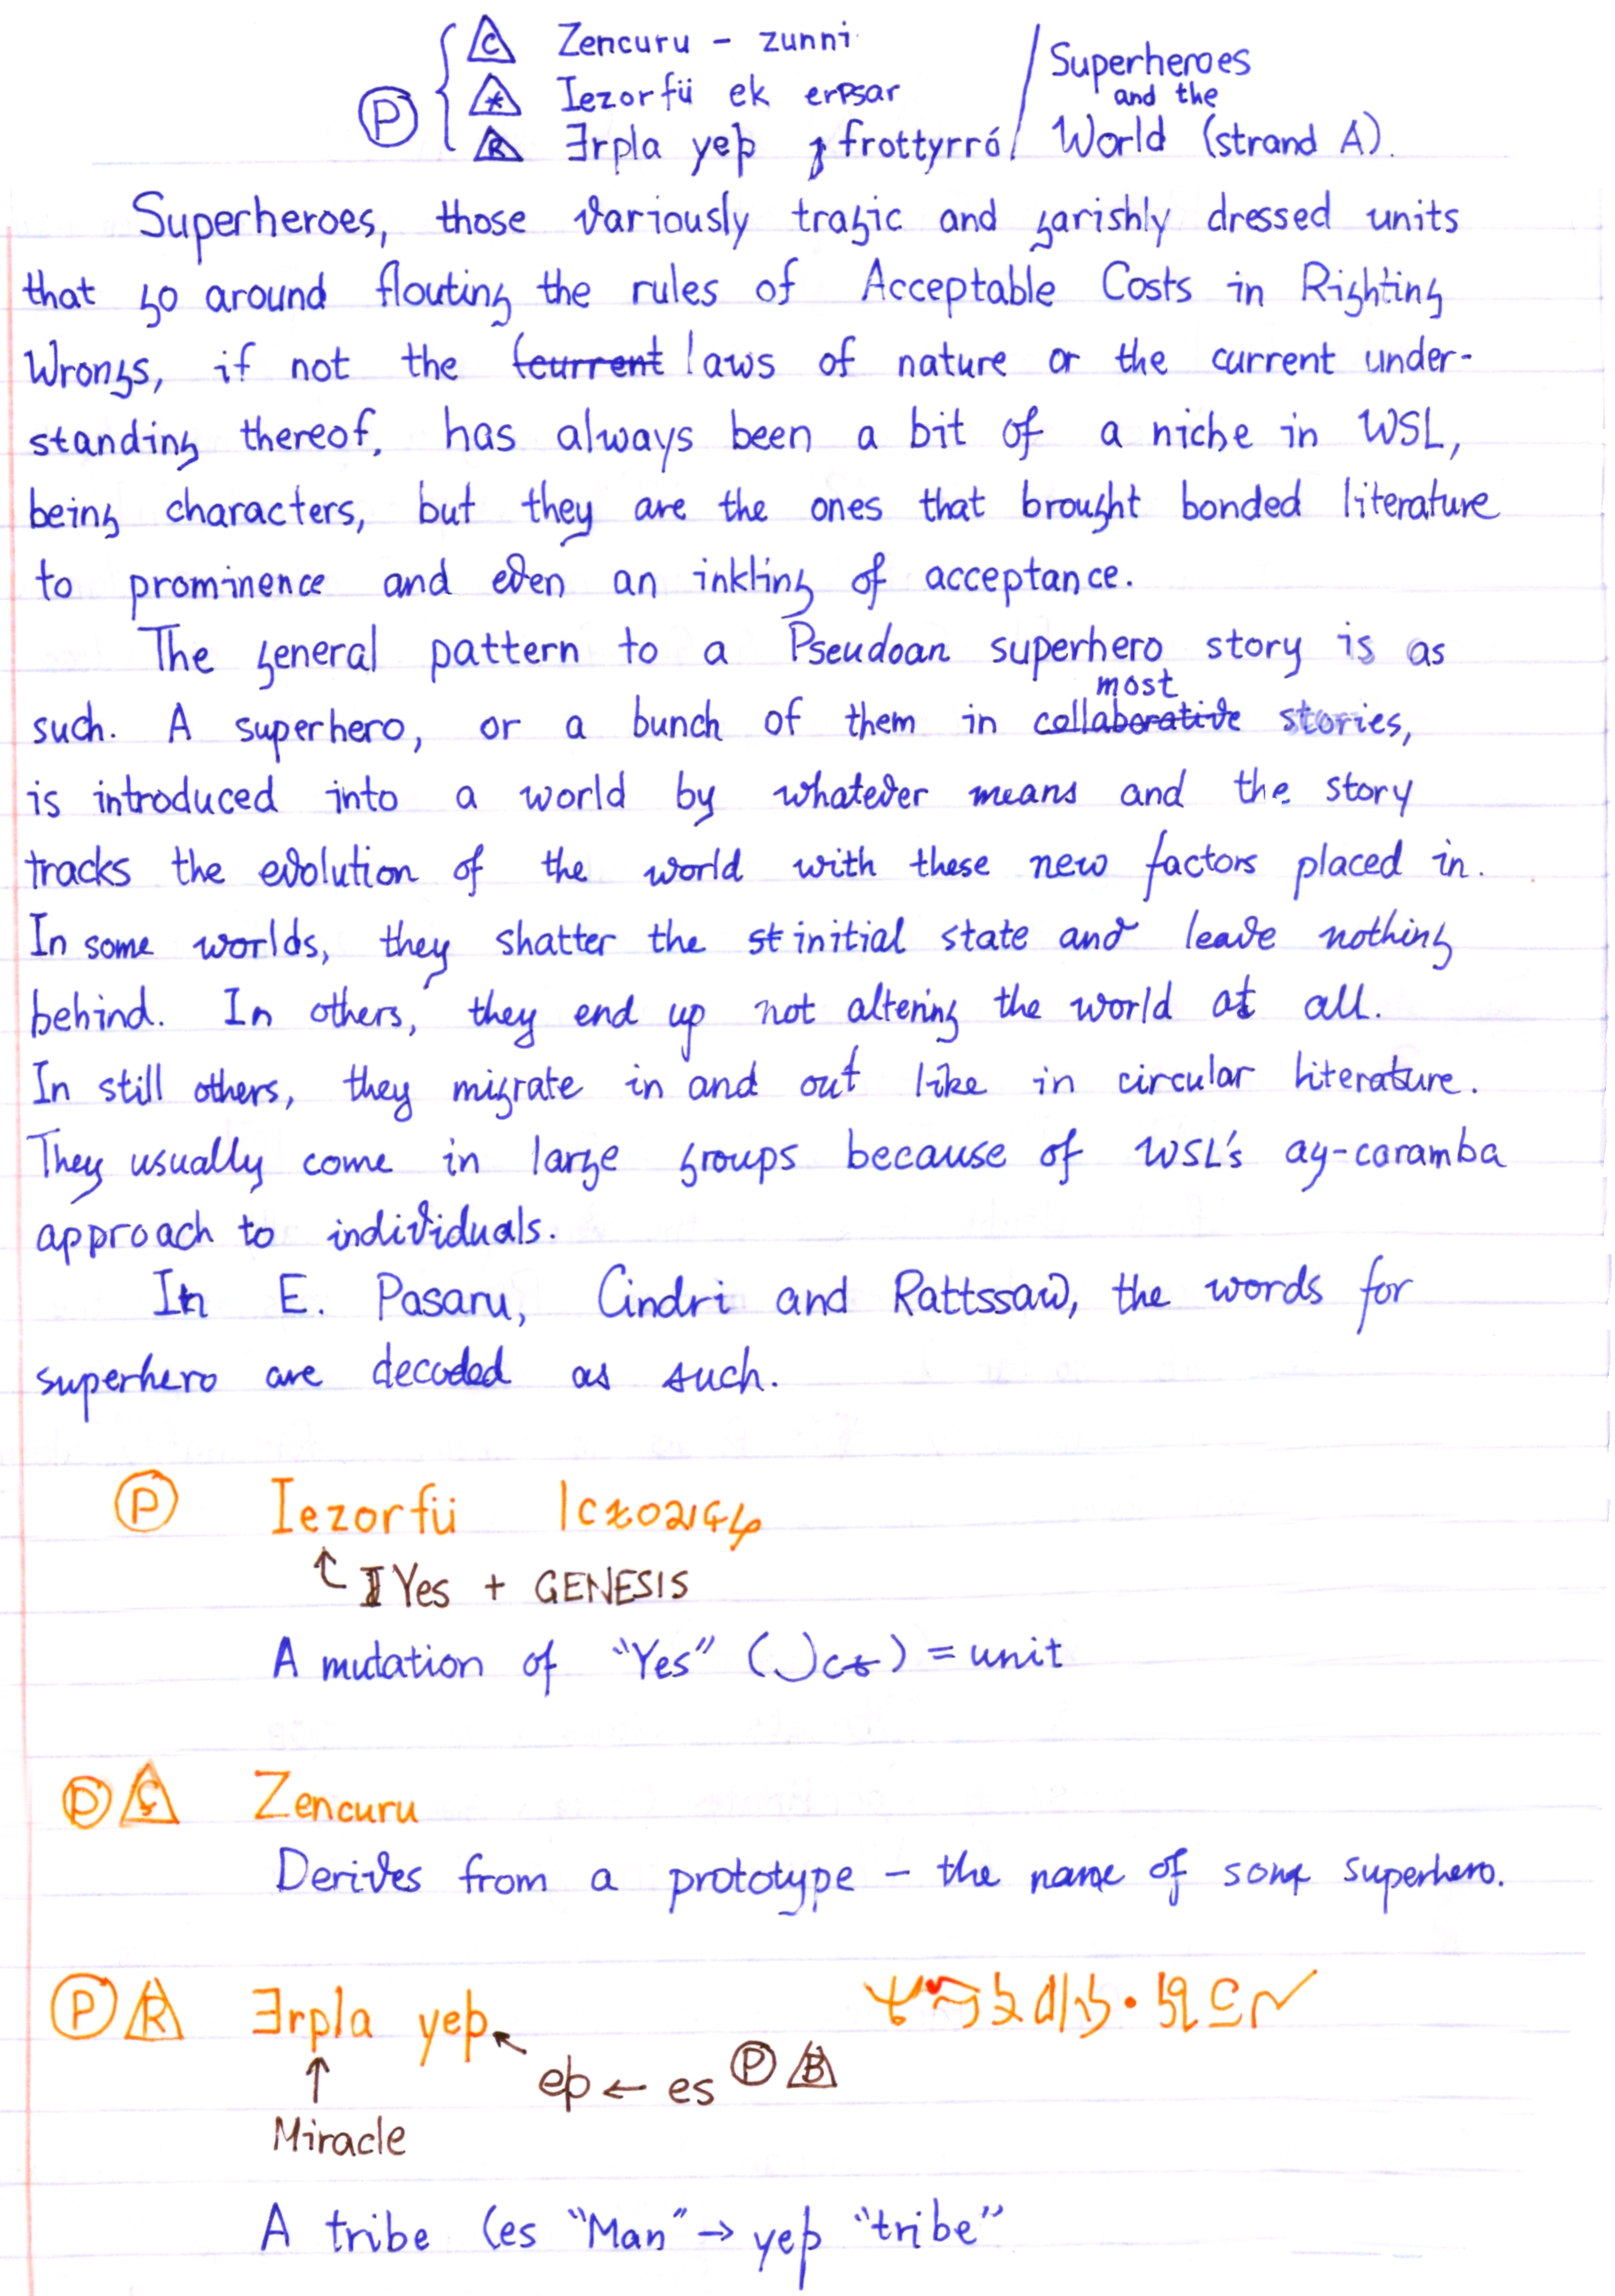 Ⓟ
C Zencuru - zunni
* Iezorfü ek erpsar
R Ǝrpla yeþ frottyrró
/ Superheroes and the World (strand A).
Superheroes, those variously tragic and garishly dressed units
that go around flouting the rules of Acceptable Costs in Righting
Wrongs, if not the (current laws of nature or the current under-
standing thereof, has always been a bit of a niche in WSL,
being characters, but they are the ones that brought bonded literature
to prominence and even an inkling of acceptance.
The general pattern to a Pseudoan superhero story is as
most
such. A superhero, or a bunch of them in collaborative stories,
is introduced into a world by whatever means and the story
tracks the evolution of the world with these new factors placed in.
In some worlds, they shatter the st initial state and leave nothing
behind. In others, they end up not altering the world at all.
In still others, they migrate in and out like in circular literature.
They usually come in large groups because of WSL's ay-caramba
approach to individuals.
In E. Pasaru, Cindri and Rattssaw, the words for
superhero are decoded as such.
Ⓟ Iezorfü
Yes + GENESIS
A mutation of "Yes" ( ) = unit
Ⓟ Ç Zencuru
Derives from a prototype - the name of some superhero.
Ⓟ R Ǝrpla yeþ
eþ ← es Ⓟ B
Miracle
A tribe (es "Man" → yeþ "tribe"